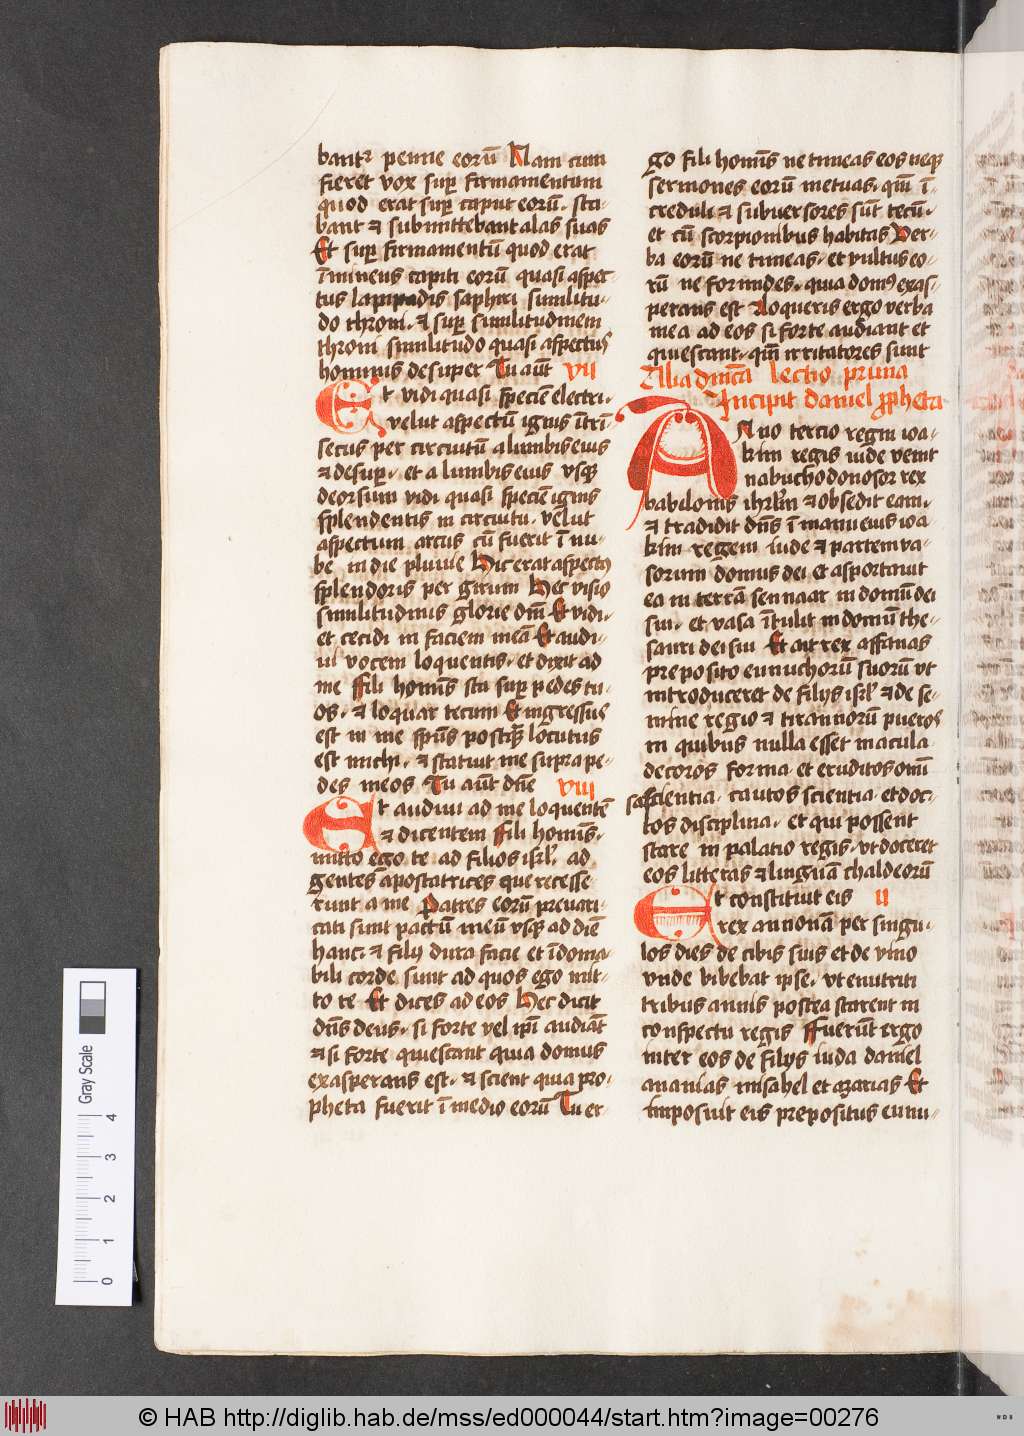 bant᷑ penne eorū Nam cum
fieret vox sup̱ firmamentum
quod erat sup̱ caput eorū. sta-
bant ⁊ submittebant alas suas
Et sup̱ firmamentū quod erat
īminens capiti eorū quasi aspec-
tus lapipadis saphiri similitu-
do throni. ⁊ sup̱ similitudinem
throni similitudo quasi aspectus
hominis desuper Tu aūt VII
Et vidi quasi speciē electri.
velut aspectū ignis ītri-
secus per circuitū a lumbis eius
⁊ desup̱. et a lumbis eius vsq̢
deorsum vidi quasi speciē ignis
splendentis in circuitu. velut
aspectum arcus cū fuerit ī nu-
be in die pluuie Hic erat aspectus
splendoris per girum Hec visio
similitudinis glorie dn̄i Et vidi.
et cecidi in faciem meā Et audi-
ui vocem loquentis. et dixit ad
me ffili homīs sta sup̱ pedes tu-
os. ⁊ loquar tecum Et ingressus
est in me spūs postq̄ locutus
est michi. ⁊ statuit me supra pe-
des meos Tu aūt dn̄e VIII
Et audiui ad me loquentē
⁊ dicentem ffili homīs.
mitto ego te ad filios isrl̄. ad
gentes apostatrices que recesse-
runt a me Patres eorū preuari-
cati sunt pactū meū vsq̢ ad diē
hanc. ⁊ filij dura facie et īdoma-
bili corde sunt ad quos ego mit-
to te Et dices ad eos Hec dicit
dn̄s deus. si forte vel ip̄i audiāt
⁊ si forte quiescant quia domus
exasperans est. ⁊ scient quia pro-
pheta fuerit ī medio eorū Tu er-
go fili homīs ne timeas eos neq̢
sermones eorū metuas. qm̄ ī-
creduli ⁊ subuersores sūt tecū.
et cū scorpionibus habitas Ver-
ba eorū ne timeas. et vultus eo-
rū ne formides. quia domꝰ exas-
perans est Loqueris ergo verba
mea ad eos si forte audiant et
quiescant. qm̄ irritatores sunt
Alia dn̄ica lectio prima
Incipit daniel ꝓpheta
Anno tercio regni ioa-
kim regis iude venit
nabuchodonosor rex
babilonis ihrl̄m ⁊ obsedit eam.
⁊ tradidit dn̄s ī manu eius ioa-
kim regem iude ⁊ partem va-
sorum domus dei et asportauit
ea in terrā sennaar in domū dei
sui. et vasa ītulit in domum the-
sauri dei sui Et ait rex affanas
preposito eunuchorū suorū vt
introduceret de filijs isrl̄ ⁊ de se-
mine regio ⁊ tirannorū pueros
in quibus nulla esset macula
decoros forma. et eruditos omī
sascientia. cautos scientia. et doc-
tos disciplina. et qui possent
stare in palatio regis. vt doceret
eos litteras ⁊ linguā chaldeorū
Et constituit eis II
rex annonā per singu-
los dies de cibis suis et de vino
vnde bibebat ipse. vt enutriti
tribus annis postea starent in
conspectu regis ffuerūt ergo
inter eos de filijs iuda daniel
ananias misahel et azarias Et
imposuit eis prepositus eunu-
Gray Scale
0 1 2 3 4
© HAB http://diglib.hab.de/mss/ed000044/start.htm?image=00276